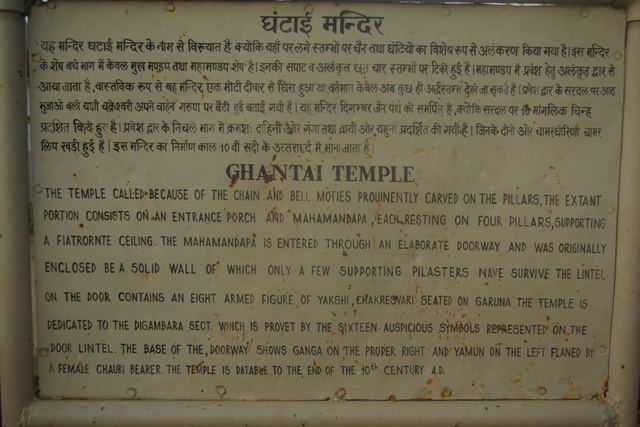 घंटाई मन्दिर
यह मन्दिर घटाई मन्दिर के नाम से विख्यात है क्योंकि यहाँ पर लगे स्तम्भों पर चैन तथा घंटियों का विशेष रूप से अलंकरण किया गया है। इस मन्दिर
के शेष बचे भाग में केवल मुख मण्डप तथा महामण्डप शेष है। इनकी सपाट व अलंकृत छत चार स्तम्भों पर टिकी हुई है। महामण्डप में प्रवेश हेतु अलंकृत द्वार से
आया जाता है, वास्तविक रूप से यह मन्दिर एक मोटी दीवार से घिरा हुआ था, वर्तमान केवल अब कुछ ही अर्द्धस्तम्भ देखे जा सकते हैं। प्रवेश द्वार के सरदल पर आठ
भुजाओं वाली यक्षी चक्रेश्वरी अपने वाहन गरुण पर बैठी हुई बताई गयी है। यह मन्दिर दिगम्बर जैन पंथ को समर्पित है, क्योंकि सरदल पर 16 मांगलिक चिन्ह
प्रदर्शित किये हुए है। प्रवेश द्वार के निचले भाग में क्रमशः दहिनी ओर गंगा तथा बायी ओर यमुना प्रदर्शित की गयी है। जिनके दोनो ओर चामरधारिणी चामर
लिए खड़ी हुई है। इस मन्दिर का निर्माण काल 10 वीं सदी के उत्तरार्द्ध से माना जाता है।
GHANTAI TEMPLE
THE TEMPLE CALLED BECAUSE OF THE CHAIN AND BELL MOTIES PROUINENTLY CARVED ON THE PILLARS, THE EXTANT
PORTION CONSISTS ON AN ENTRANCE PORCH AND MAHAMANDAPA, EACH RESTING ON FOUR PILLARS, SUPPORTING
A FIATRORNTE CEILING. THE MAHAMANDAPA IS ENTERED THROUGH AN ELABORATE DOORWAY AND WAS ORIGINALLY
ENCLOSED BE A SOLID WALL OF WHICH ONLY A FEW SUPPORTING PILASTERS NAVE SURVIVE THE LINTEL
ON THE DOOR CONTAINS AN EIGHT ARMED FIGURE OF YAKSHI, CHAKRESVARI SEATED ON GARUNA THE TEMPLE IS
DEDICATED TO THE DIGAMBARA SECT. WHICH IS PROVET BY THE SIXTEEN AUSPICIOUS SYMBOLS REPRESENTED ON THE
DOOR LINTEL. THE BASE OF THE DOORWAY SHOWS GANGA ON THE PROPER RIGHT AND YAMUN ON THE LEFT FLANED BY
A FEMALE CHAURI BEARER. THE TEMPLE IS DATABLE TO THE END OF THE 10th CENTURY A.D.